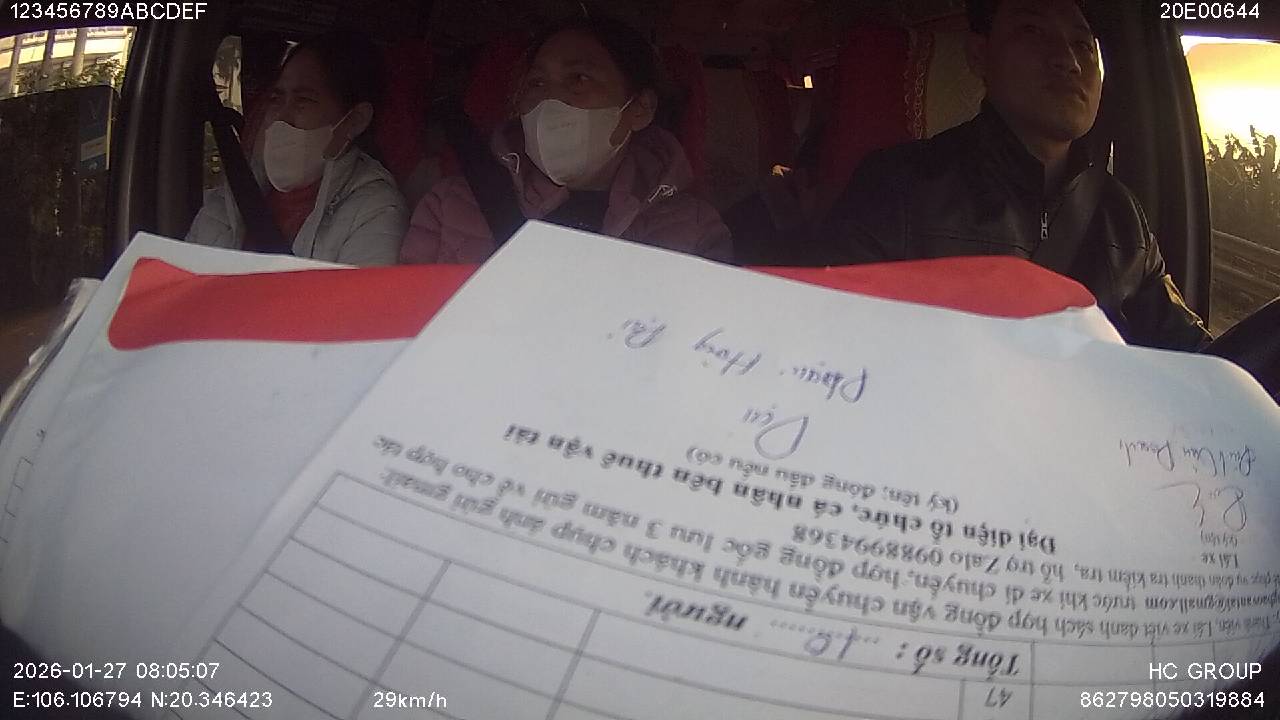 123456789ABCDEF
20E00644
47
Tổng số: ... người.
viên. Lái xe viết danh sách hợp đồng vận chuyển hành khách chụp ảnh gửi gmail:
trước khi xe di chuyển, hợp đồng gốc lưu 3 năm gửi về cho hợp tác
vụ đoàn thanh tra kiểm tra, hỗ trợ Zalo 0988994368
Lái xe
Đại diện tổ chức, cá nhân bên thuê vận tải
(ký tên; đóng dấu nếu có)
2026-01-27 08:05:07
HC GROUP
E:106.106794 N:20.346423
29km/h
862798050319884